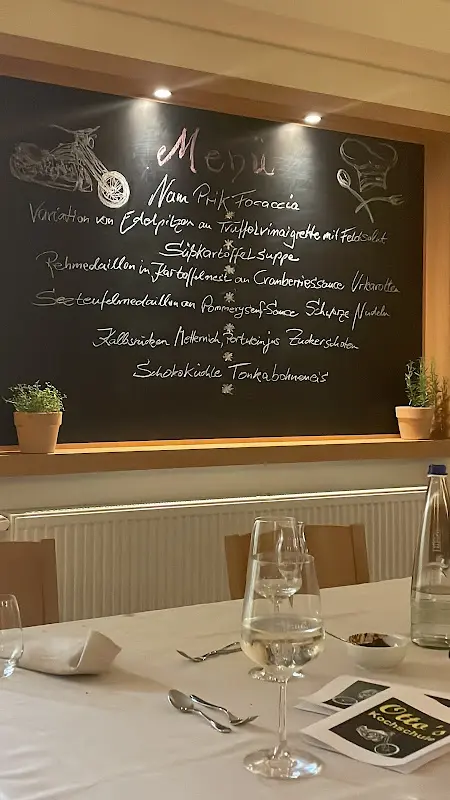 Menü
Nam Prik Focaccia
Variation von Edelpilzen an Trüffelvinaigrette mit Feldsalat
Süßkartoffelsuppe
Rehmedaillon im Kartoffelnest an Cranberriessauce Urkarotten
Seeteufelmedaillon an Pommerysenf-Sauce Schwarze Nudeln
Kalbsrücken Metternich, Portweinjus Zuckerschoten
Schokoküchle Tonkabohneneis
Otto's
Kochschule